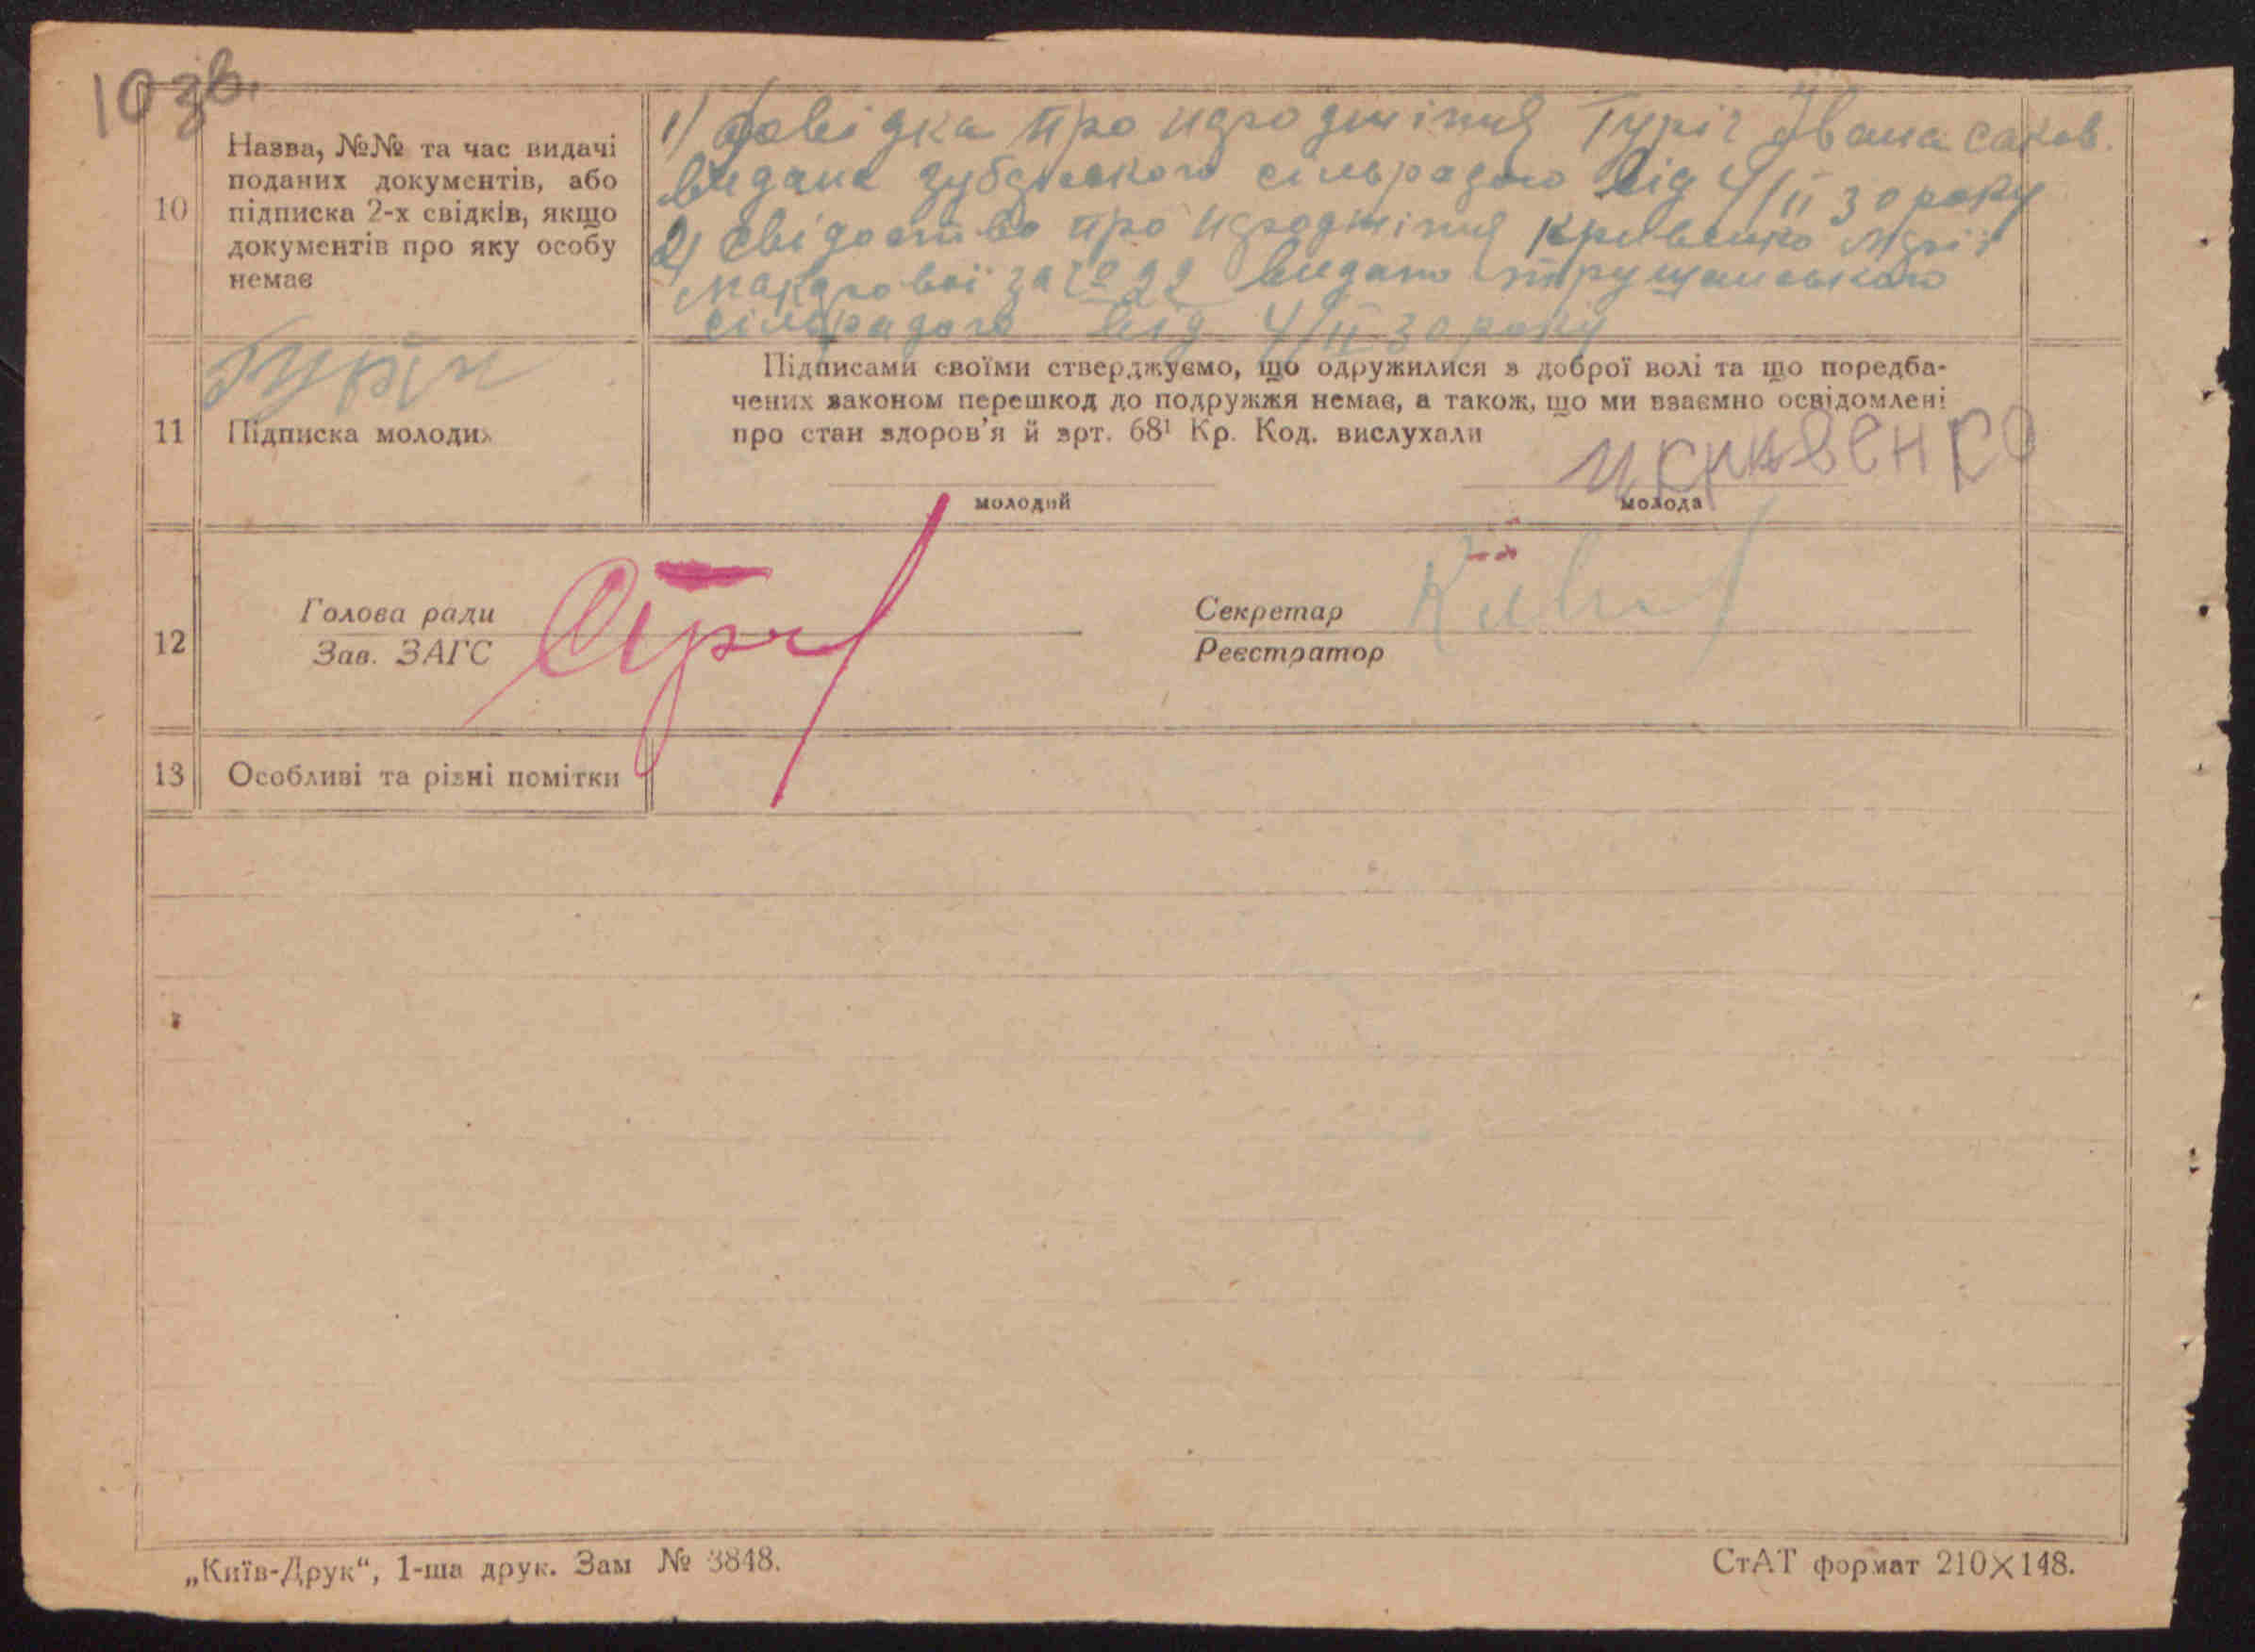 10 зв.
10
Назва, №№ та час видачі
поданих документів, або
підписка 2-х свідків, якщо
документів про яку особу
немає
1) довідка про народжіння Туріч Івана саков.
видана сільрадою від 4/II 30 року
2) свідоство про народжіння Кривенко Марії
за № 22 видано трущанською
сільрадою від 4/II 30 року
11
Підписка молодих
Туріч
Підписами своїми стверджуємо, що одружилися з доброї волі та що поредба-
чених законом перешкод до подружжя немає, а також, що ми взаємно освідомлені
про стан здоров'я й арт. 68¹ Кр. Код. вислухали
молодий
молода
М Кривенко
12
Голова ради
Зав. ЗАГС
Секретар
Реєстратор
13
Особливі та різні помітки
„Київ-Друк“, 1-ша друк. Зам № 3848.
СтАТ формат 210×148.